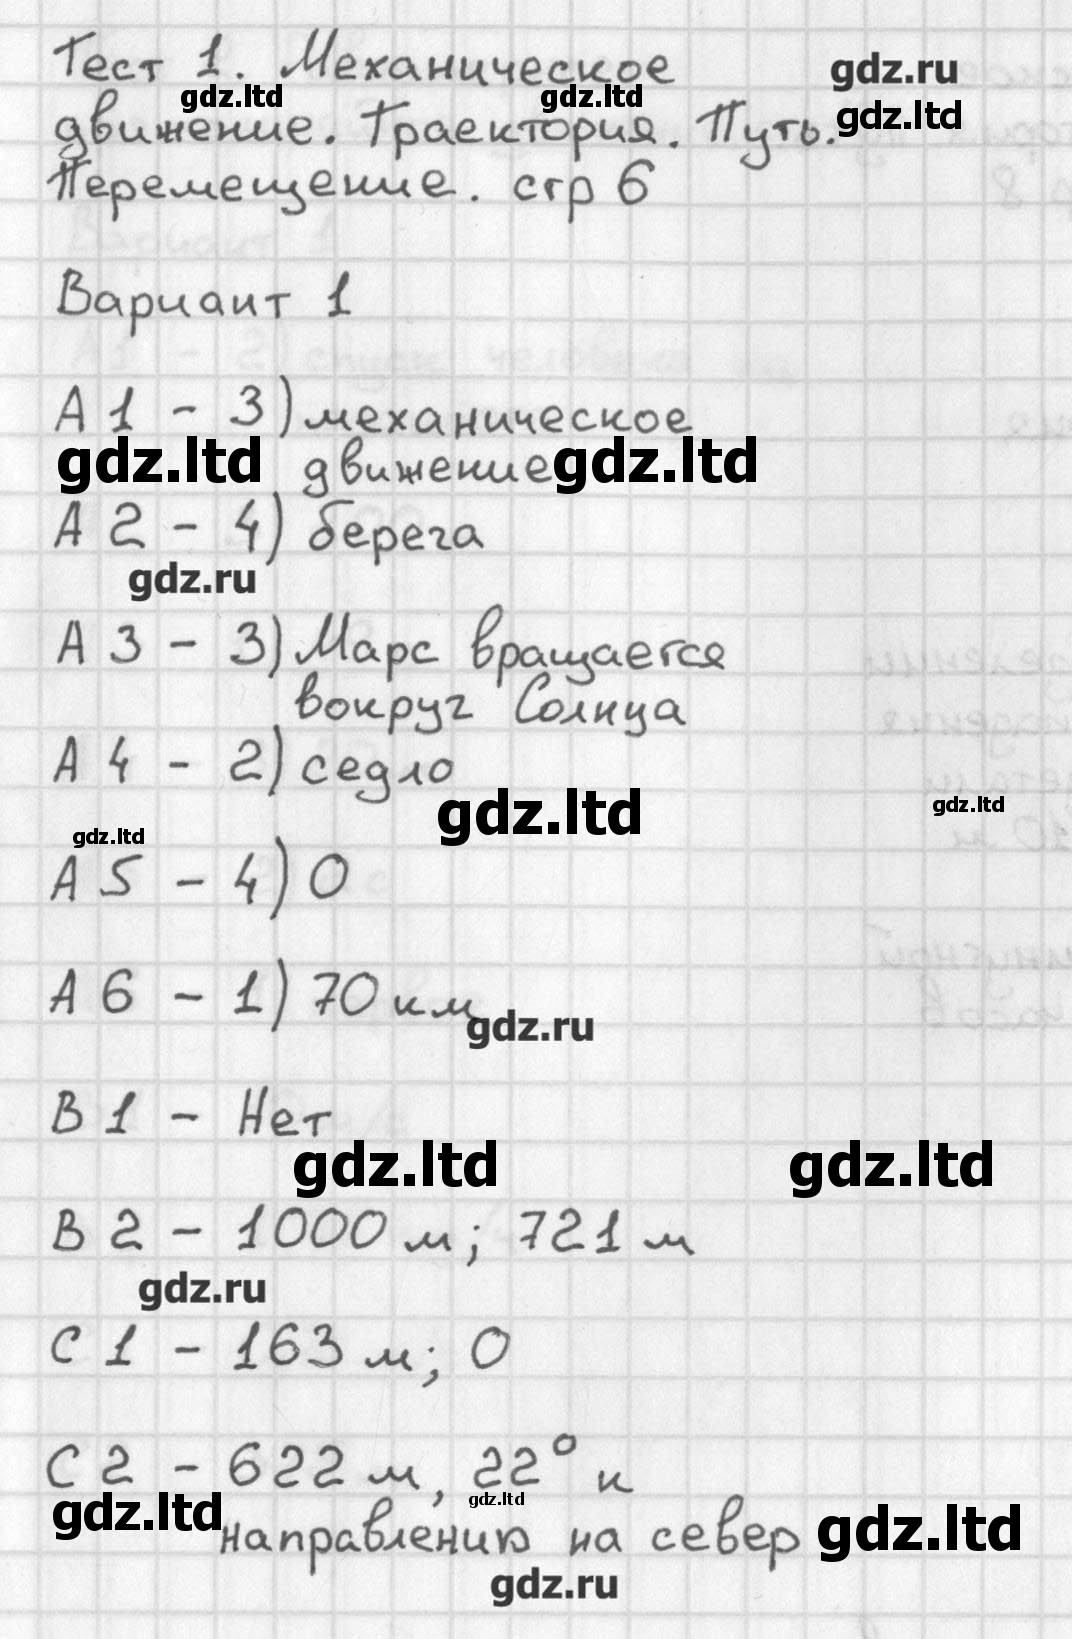 Тест 1. Механическое
gdz.ru
gdz.ltd gdz.ltd gdz.ltd
движение. Траектория. Путь.
Перемещение. стр 6
Вариант 1
А1 - 3) механическое
gdz.ltd движение gdz.ltd
А2 - 4) берега
gdz.ru
А3 - 3) Марс вращается
вокруг Солнца
А4 - 2) седло
gdz.ltd gdz.ltd
gdz.ltd
А5 - 4) 0
А6 - 1) 70 км
gdz.ru
В1 - Нет
gdz.ltd gdz.ltd
В2 - 1000 м; 721 м
gdz.ru
С1 - 163 м; 0
С2 - 622 м, 22° к
gdz.ltd gdz.ltd
направлению на север gdz.ltd
gdz.ru